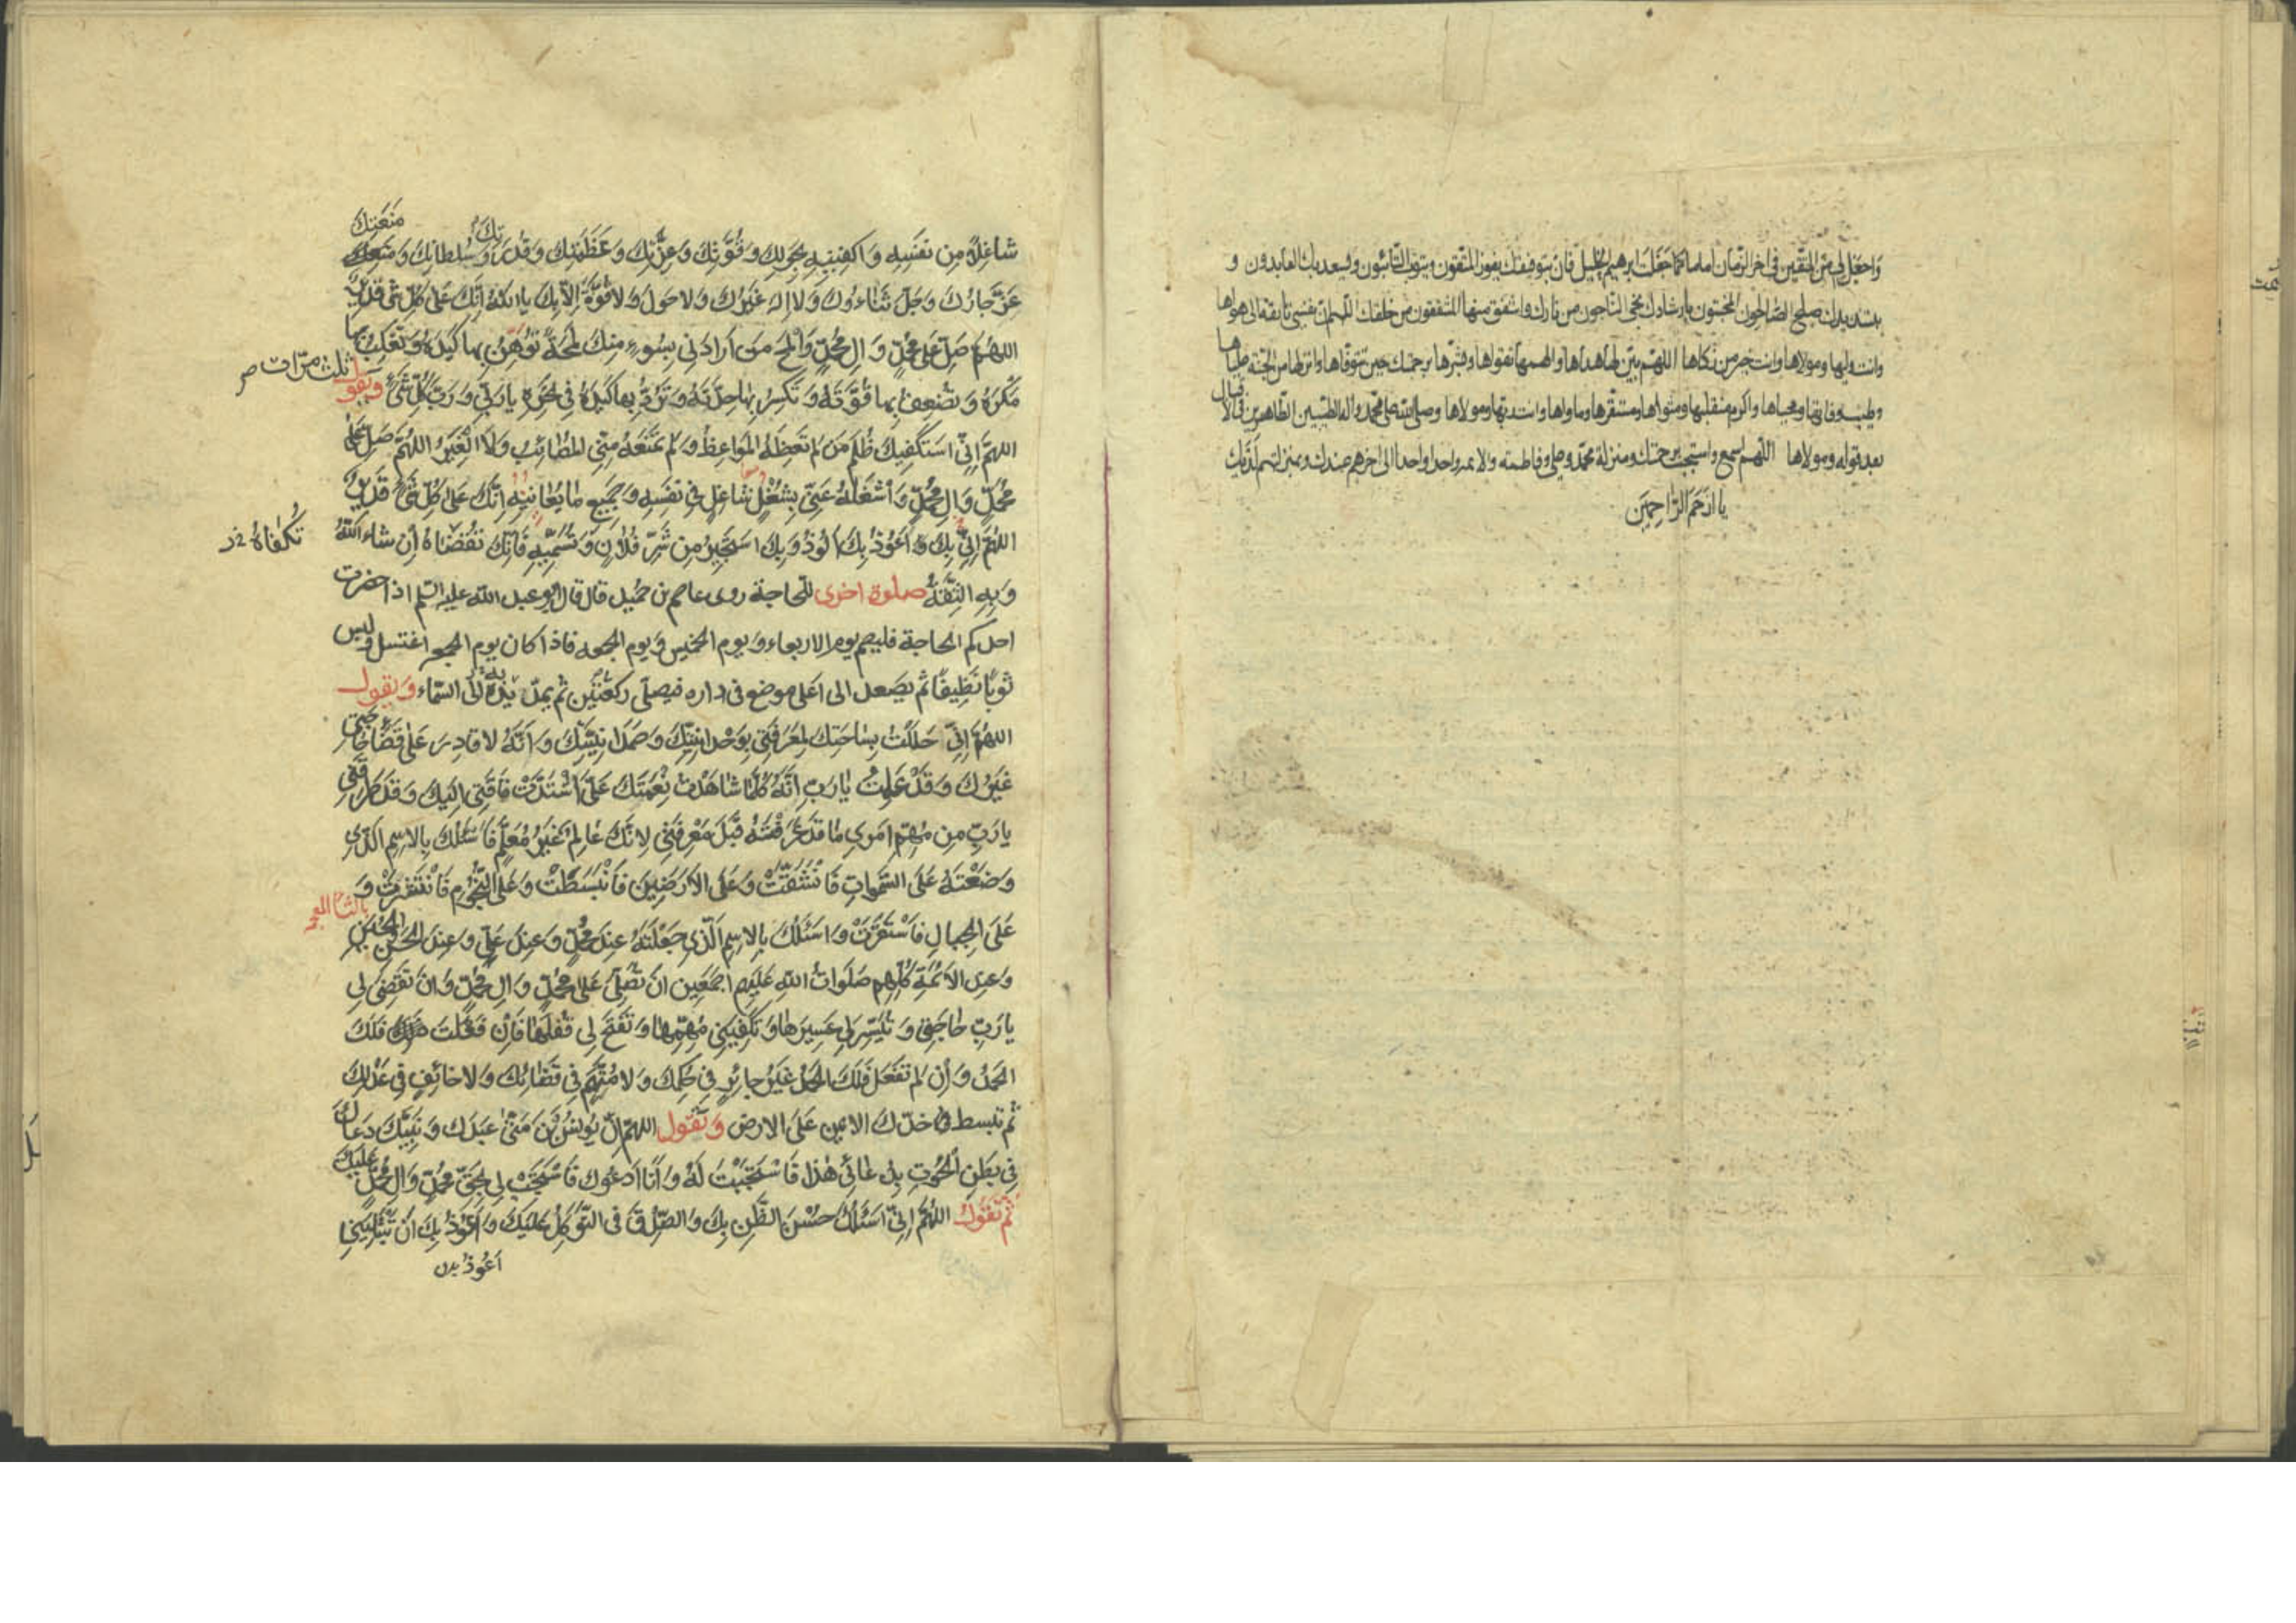 وَاجعَل لِي مِنَ المتّقين في اخر الزّمان اماما كما جَعَلتَ ابرهيم الخليل فان بتوفيقك يفوز المتقون ويتوب التّائبون ويسعد بك العابدون و
بتسديدك يصلح الصّالحون المخبتون وبارشادك نجى النّاجون من نارك واشفق منها المشفقون من خلقك اللّهم ان نفسى تائقة الى هواها
وانت وليها ومولاها وانت خير من زكاها اللّهم بيّن لها هداها والهمها تقواها وبشّرها برحمتك حين تتوفّاها وانزلها من الجنّة علياها
وطيب وفاتها ومحياها واكرم منقلبها ومثواها ومستقرّها وماواها وانت ربّها ومولاها وصلى الله على محمّد واله الطيّبين الطّاهرين
بعد قوله ومولاها اللّهم اسمع واستجب برحمتك ومنزلة محمّد وعلي وفاطمة والائمة واحدا واحدا الى اخرهم عندك وبمنزلتهم لديك
يا اَرحَمَ الرّاحِمِينَ
مَنَعَتِكَ
شاغِلَةً مِن نَفسِهِ وَاكفِنِيهِ بِحَولِكَ وَقُوَّتِكَ وَعِزَّتِكَ وَعَظَمَتِكَ وَقُدرَتِكَ وَسُلطانِكَ وَ
عَزَّ جارُكَ وَجَلَّ ثَناءُوكَ وَلا اِلهَ غَيرُكَ وَلا حَولَ وَلا قُوَّةَ اِلّا بِكَ يا اللهُ اِنَّكَ عَلى كُلِّ شَيءٍ قَدِيرٌ
اللهُمَّ صَلِّ عَلى مُحمّدٍ وَ الِ مُحمّدٍ وَالمَح مَن اَرادَنِي بِسُوءٍ مِنكَ لَمحَةً تُوهِنُ بِها كَيدَهُ وَتَغلِبُ بِها
ثلث مرّات
مَكرَهُ وَ تُضعِفُ بِها قُوَّتَهُ وَ تَكسِرُ بِها حِدَّتَهُ وَتَرُدُّ بِها كَيدَهُ فِي نَحرِهِ يا رَبِّي وَرَبَّ كُلِّ شَيءٍ وتقول
اللهُمَّ اِنِّي اَستَكفِيكَ ظُلمَ مَن لَم تَعِظهُ المَواعِظُ وَ لَم تَمنَعهُ مِنِّي المَصائِبُ وَلَا الغِيَرُ اللهُمَّ صَلِّ عَلى
مُحمّدٍ وَ الِ مُحمّدٍ وَ اشغَلهُ عَنِّي بِشُغلٍ شاغِلٍ فِي نَفسِهِ وَ جَمِيعِ ما يُعانِيهِ اِنَّكَ عَلى كُلِّ شَيءٍ قَدِيرٌ
اللهُمَّ اِنِّي بِكَ اَعُوذُ وَبِكَ اَلُوذُ وَ بِكَ اَستَجِيرُ مِن شَرِّ فُلانٍ وَتُسَمِّيهِ فَاِنَّكَ اِن شاءَ اللهُ
تُكفاهُ
وَبِهِ الثِّقَةُ صلوة اخرى للحاجة روى عاصم بن حميد قال قال ابو عبد الله عليه السّلم اذا حضرت
احدكم الحاجة فليصم يوم الاربعاء و يوم الخميس و يوم الجمعه فاذا كان يوم الجمعه اغتسل ولبس
ثوبًا نَظِيفًا ثم يصعد الى اعلى موضع فى داره فيصلّى ركعتين ثم يمدّ يديه الى السّماء وَ يقول
اللهُمَّ اِنِّي حَلَلتُ بِساحَتِكَ لِمَعرِفَتِي بِوَحدانِيَّتِكَ وَصَمَدانِيَّتِكَ وَ اَنَّهُ لا قادِرَ عَلى قَضاءِ حاجَتِي
غَيرُكَ وَ قَد عَلِمتُ يا رَبِّ اَنَّهُ كُلَّما شاهَدتُ نِعمَتَكَ عَلَيَّ اشتَدَّت فاقَتِي اِلَيكَ وَ قَد طَرَقَنِي
يا رَبِّ مِن مُهِمِّ اَمرِي ما قَد عَرَفتَهُ قَبلَ مَعرِفَتِي لِاَنَّكَ عالِمٌ غَيرُ مُعَلَّمٍ فَاَسئَلُكَ بِالاِسمِ الَّذِي
وَضَعتَهُ عَلَى السَّمواتِ فَانشَقَّت وَ عَلَى الاَرَضِينَ فَانبَسَطَت وَ عَلَى النُّجُومِ فَانتَثَرَت وَ
عَلَى الجِبالِ فَاستَقَرَّت وَ اَسئَلُكَ بِالاِسمِ الَّذِي جَعَلتَهُ عِندَ مُحمّدٍ وَ عِندَ عَلِيٍّ وَ عِندَ الحَسَنِ وَالحُسَينِ
وَ عِندَ الاَئِمَّةِ كُلِّهِم صَلَواتُ اللهِ عَلَيهِم اَجمَعِينَ اَن تُصَلِّيَ عَلى مُحمّدٍ وَ الِ مُحمّدٍ وَ اَن تَقضِيَ لِي
يا رَبِّ حاجَتِي وَ تُيَسِّرَ لِي عَسِيرَها وَ تَكفِيَنِي مُهِمَّها وَ تَفتَحَ لِي قُفلَها فَاِن فَعَلتَ فَلَكَ
الحَمدُ وَ اِن لَم تَفعَل فَلَكَ الحَمدُ غَيرَ جائِرٍ فِي حُكمِكَ وَ لا مُتَّهَمٍ فِي قَضائِكَ وَ لا حائِفٍ فِي عَدلِكَ
ثم تبسط خدّك الايمن عَلَى الارض وَ تقول اللهمّ اِنّ يُونُسَ بنَ مَتّى عَبدَكَ وَ نَبِيَّكَ دَعاكَ
فِي بَطنِ الحُوتِ بِدُعائِي هذا فَاستَجَبتَ لَهُ وَ اَنَا اَدعُوكَ فَاستَجِب لِي بِحَقِّ مُحمّدٍ وَ الِ مُحمّدٍ عَلَيكَ
ثم تقول اللهُمَّ اِنِّي اَسئَلُكَ حُسنَ الظَّنِّ بِكَ وَالصِّدقَ فِى التَّوَكُّلِ عَلَيكَ وَ اَعُوذُ بِكَ اَن تَبتَلِيَنِي
اَعُوذُ بك